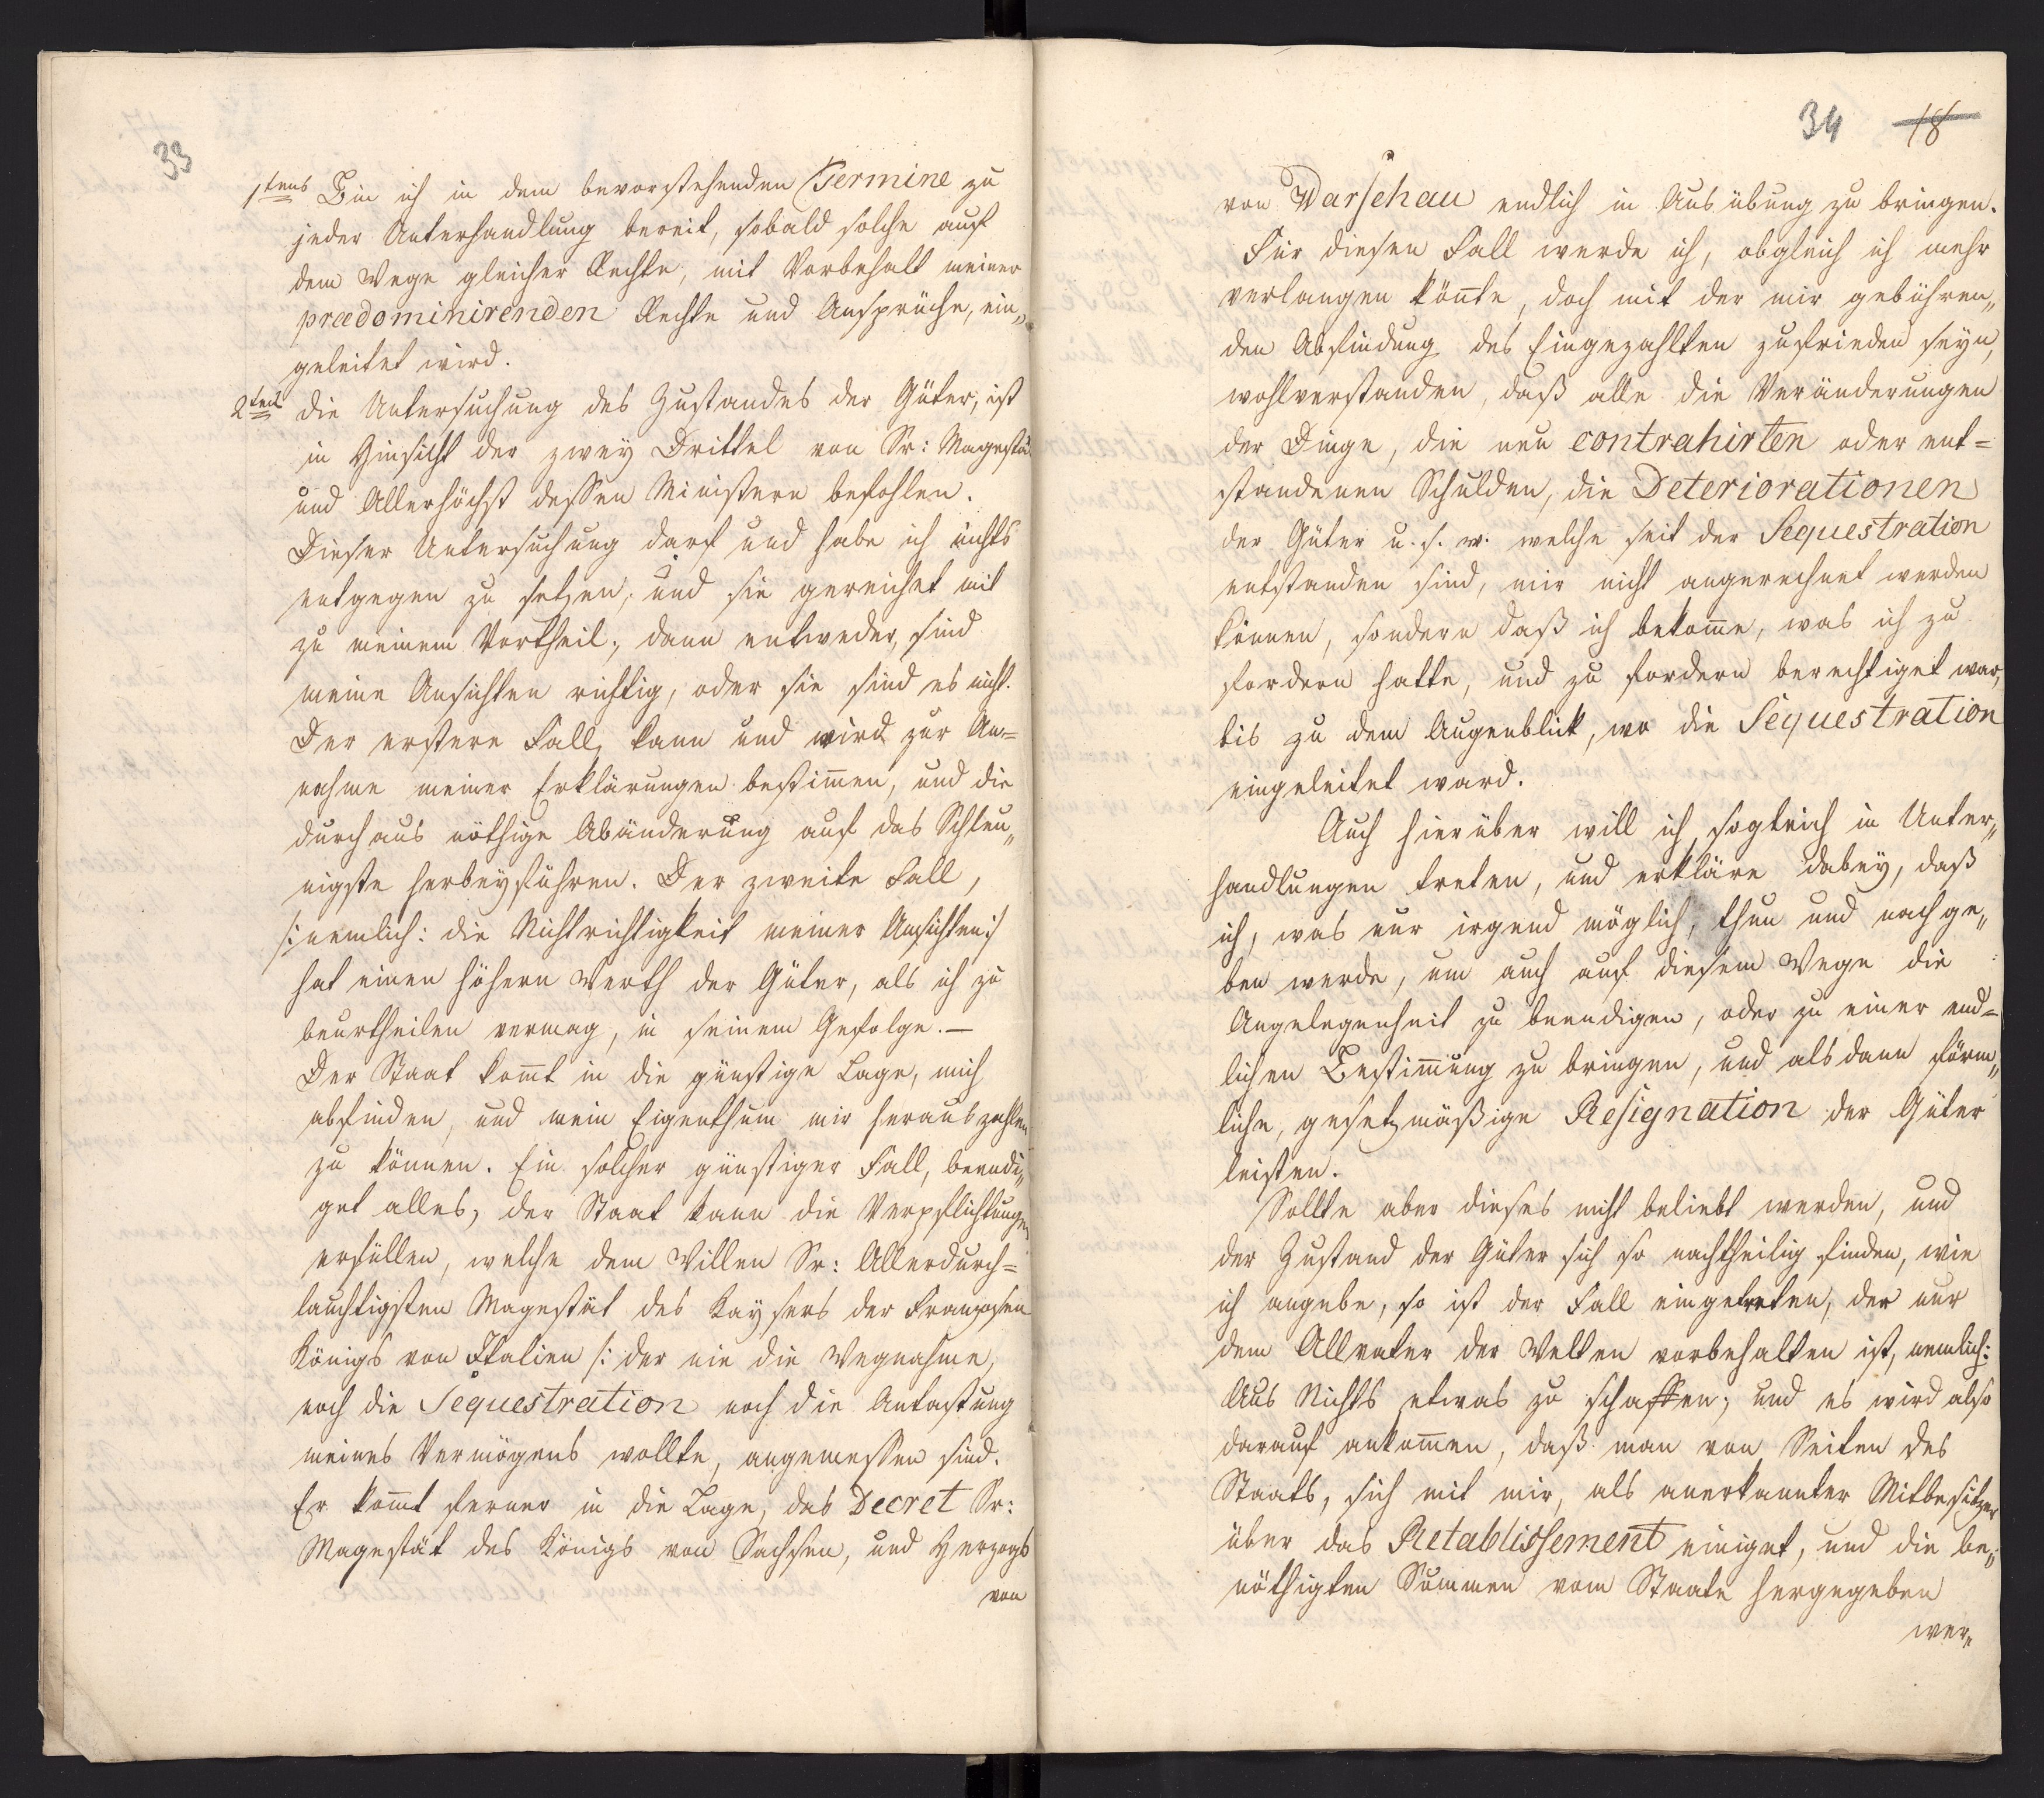 33
1tens Bin ich in dem bevorstehenden Termine zu
jeder Unterhandlung bereit, sobald solche auf
dem Wege gleicher Rechte, mit Vorbehalt meiner
prædominirenden Rechte und Ansprüche, ein„
geleitet wird.
2tens die Untersuchung des Zustandes der Güter, ist
in Hinsicht der zwey Drittel von Sr: Magestät
und Allerhöchst dessen Ministern befohlen.
Dieser Untersuchung darf und habe ich nichts
entgegen zu setzen, und sie gereichet mit
zu meinem Vortheil; dann entweder, sind
meine Ansichten richtig, oder sie sind es nicht.
Der erstere Fall, kann und wird zur An=
nahme meiner Erklärungen bestim̅en, und die
durchaus nöthige Abänderung auf das Schleu„
nigste herbeyführen. Der zweite Fall,
/: nemlich: die Nichtrichtigkeit meiner Ansichten :/
hat einen höhern Werth der Güter, als ich zu
beurtheilen vermag, in seinem Gefolge. —
Der Staat kom̅t in die günstige Lage, mich
abfinden, und mein Eigenthum mir herauszahlen
zu können. Ein solcher günstiger Fall, beendi„
get alles, der Staat kann die Verpflichtungen
erfüllen, welche dem Willen Sr: Allerdurch=
lauchtigsten Magestät des Kaysers der Franzosen
Königs von Italien /: der nie die Wegnahme,
noch die Sequestration noch die Antastung
meines Vermögens wollte, angemessen sind.
Er kom̅t ferner in die Lage, das Decret Sr:
Magestät des Königs von Sachsen, und Herzogs
von
34 18
von Warschau endlich in Ausübung zu bringen.
Für diesen Fall werde ich, obgleich ich mehr
verlangen kön̅te, doch mit der mir gebühren„
den Abfindung des Eingezahlten zufrieden seyn,
wohlverstanden, daß alle die Veränderungen
der Dinge, die neu contrahirten oder ent=
standenen Schulden, die Deteriorationen
der Güter u. s. w. welche seit der Sequestration
entstanden sind, mir nicht angerechnet werden
können, sondern daß ich bekom̅e, was ich zu
fordern hatte, und zu fordern berechtiget war,
bis zu dem Augenblick, wo die Sequestration
eingeleitet ward.
Auch hierüber will ich sogleich in Unter„
handlungen treten, und erkläre dabey, daß
ich, was nur irgend möglich, thun und nachge„
ben werde, um auch auf diesem Wege die
Angelegenheit zu beendigen, oder zu einer end=
lichen Bestim̅ung zu bringen, und alsdann förm„
liche, gesetzmäßige Resignation der Güter
leisten.
Sollte aber dieses nicht beliebt werden, und
der Zustand der Güter sich so nachtheilig finden, wie
ich angebe, so ist der Fall eingetreten, der nur
dem Allvater der Welten vorbehalten ist, nemlich:
Aus Nichts etwas zu schaffen; und es wird also
darauf ankom̅en, daß man von Seiten des
Staats, sich mit mir, als anerkannter Mitbesitzer
über das Retablissement einiget, und die be„
nöthigten Summen vom Staate hergegeben
wer„